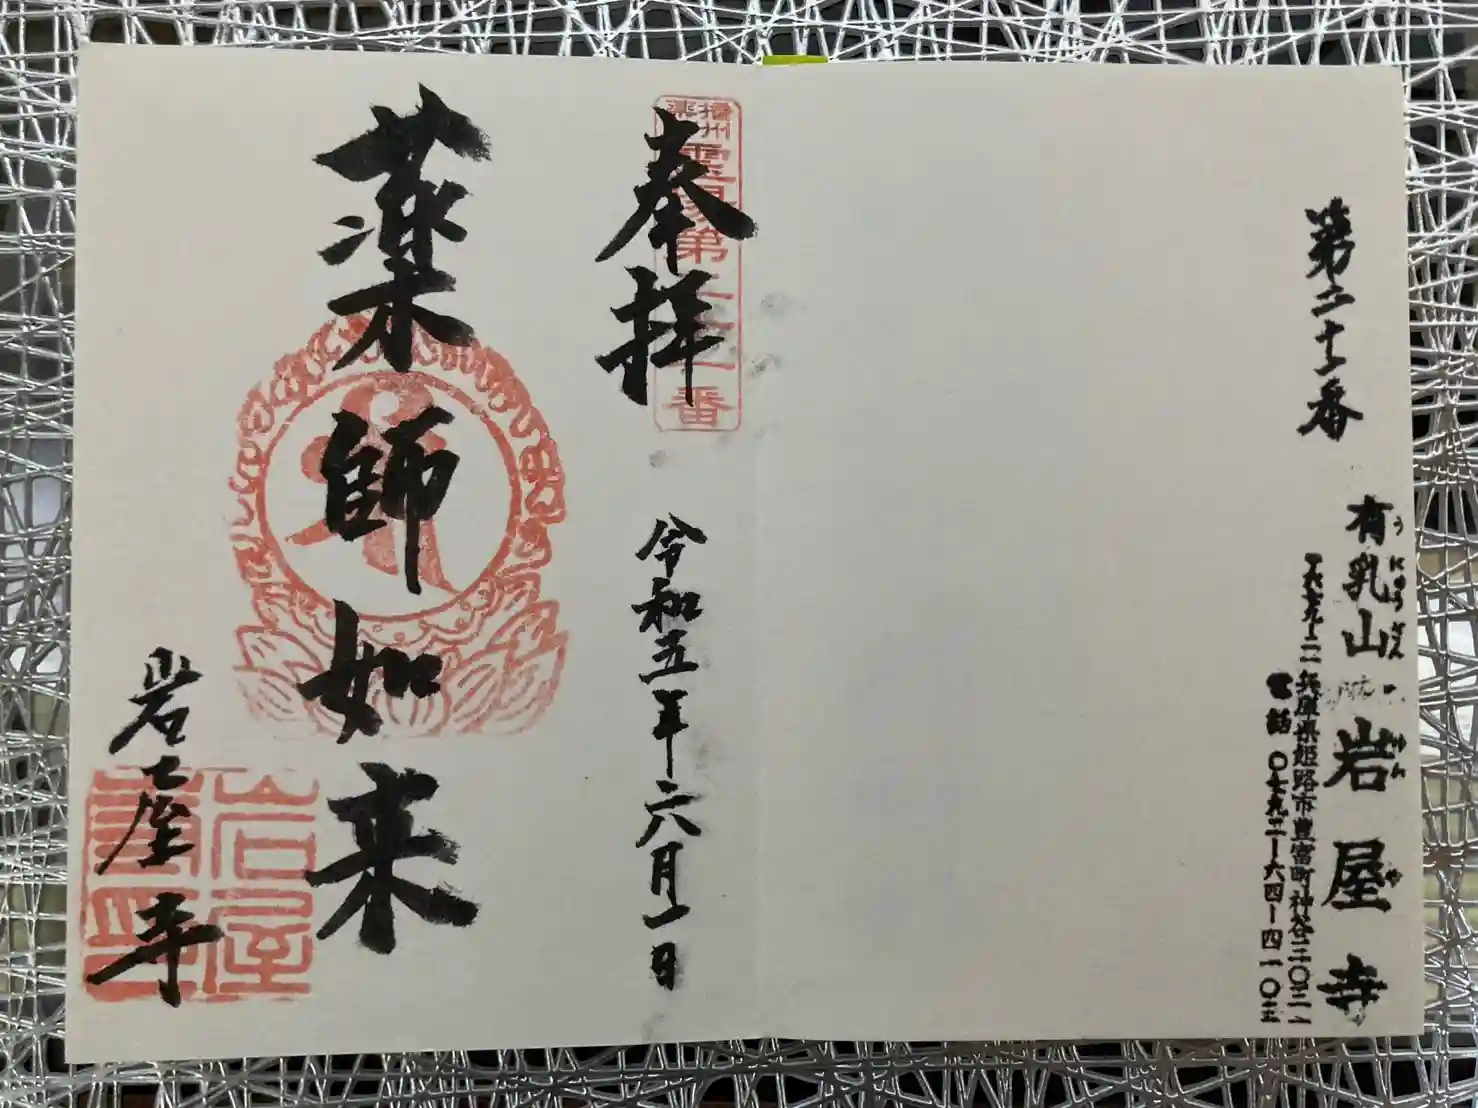 第二十一番
有乳山
うにゅう
岩屋寺
兵庫県姫路市豊富町神谷二〇三一
電話 〇七九二ー六四ー四一〇
播州薬
霊場第二十一番
奉拝
令和五年六月一日
薬師如来
岩屋寺
岩屋